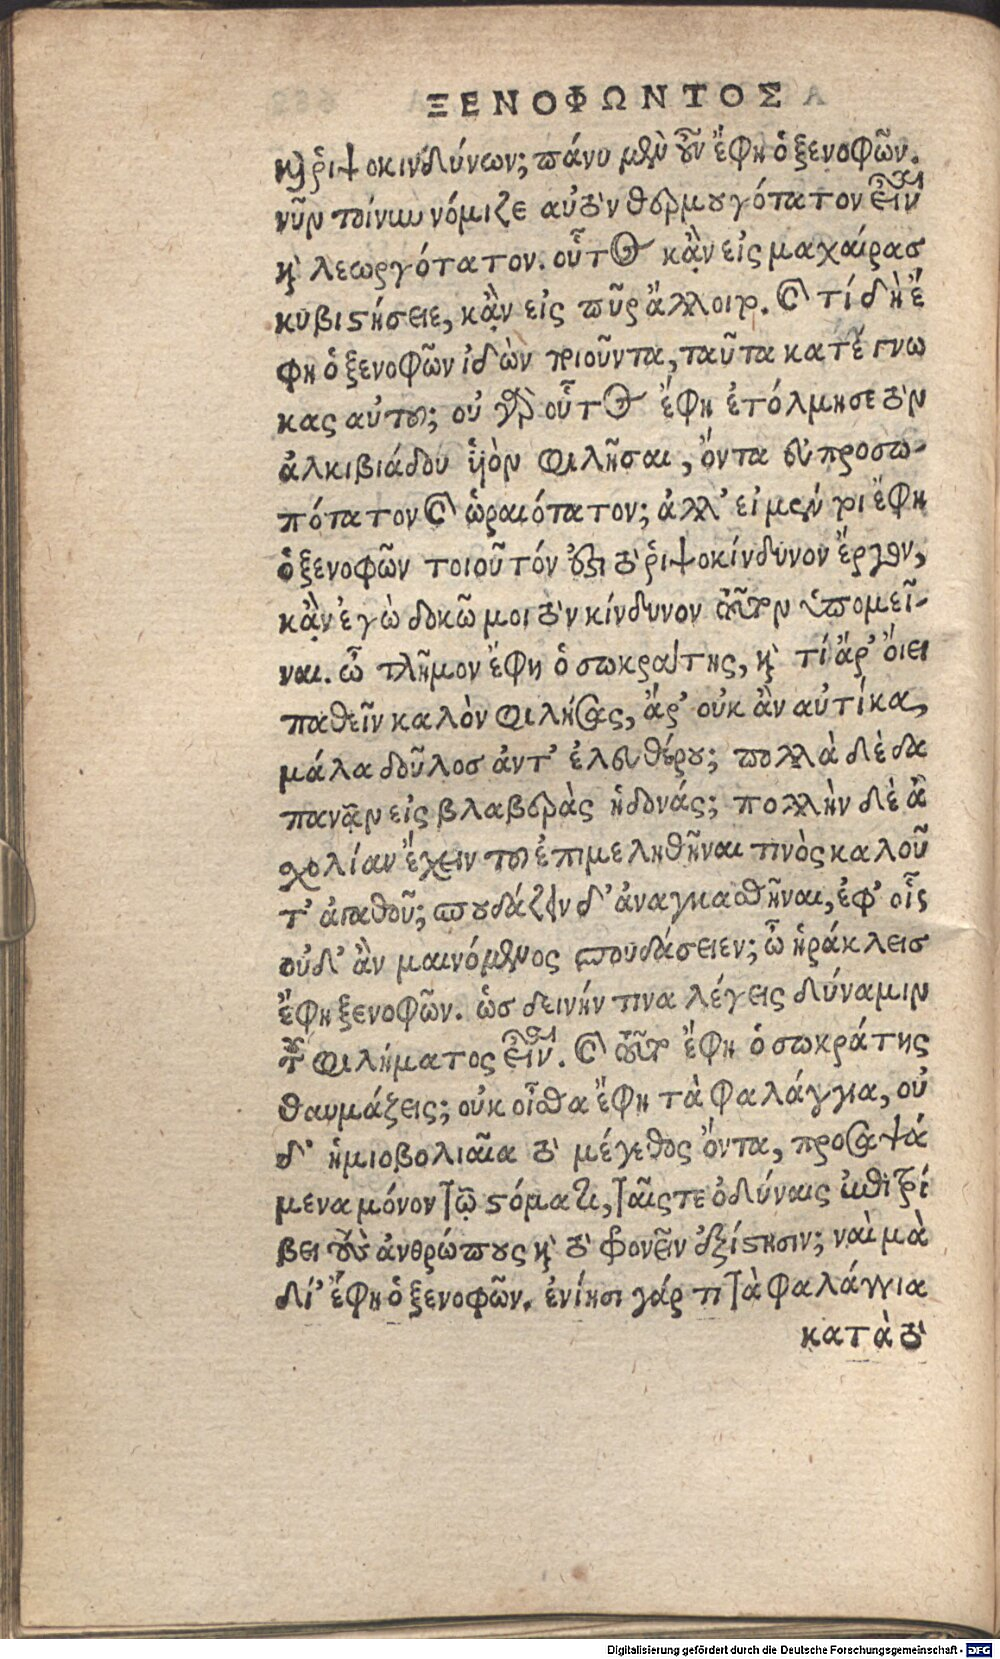 ΞΕΝΟΦΩΝΤΟΣ
καὶ ῥιψοκινδύνων; πάνυ μὲν οὖν ἔφη ὁ ξενοφῶν.
νῦν τοίνυν νόμιζε αὐτὸν θερμουγότατον εἶναι
καὶ λεωργότατον. οὗτος κἂν εἰς μαχαίρας
κυβιστήσειε, κἂν εἰς πῦρ ἅλλοιτο. καὶ τί δὴ ἔ
φη ὁ ξενοφῶν ἰδὼν ποιοῦντα, ταῦτα κατέγνω
κας αὐτοῦ; οὐ γὰρ οὗτος ἔφη ἐτόλμησε τὸν
ἀλκιβιάδου ὑιὸν φιλῆσαι, ὄντα εὐπροσω-
πότατον καὶ ὡραιότατον; ἀλλ' εἰ μέν τοι ἔφη
ὁ ξενοφῶν τοιοῦτόν ἐστι τὸ ῥιψοκίνδυνον ἔργον,
κἂν ἐγὼ δοκῶ μοι τὸν κίνδυνον τοῦτον ὑπομεῖ-
ναι. ὦ τλῆμον ἔφη ὁ σωκράτης, καὶ τί ἂρ' ὄιει
παθεῖν καλὸν φιλήσας, ἆρ' οὐκ ἂν αὐτίκα,
μάλα δοῦλος ἀντ' ἐλευθέρου; πολλὰ δὲ δα
πανᾶν εἰς βλαβερὰς ἡδονάς; πολλὴν δὲ ἀ
σχολίαν ἔχειν τοῦ ἐπιμεληθῆναι τινὸς καλοῦ
τ' ἀγαθοῦ; σπουδάζειν δ' ἀναγκασθῆναι, ἐφ' οἷς
οὐδ' ἂν μαινόμενος σπουδάσειεν; ὦ ἡράκλεις
ἔφη ξενοφῶν. ὡς δεινήν τινα λέγεις δύναμιν
τοῦ φιλήματος εἶναι. καὶ τοῦτο ἔφη ὁ σωκράτης
θαυμάζεις; οὐκ οἶσθα ἔφη τὰ φαλάγγια, οὐ
δ' ἡμιοβολιαῖα τὸ μέγεθος ὄντα, προσαψά
μενα μόνον τῷ στόματι, ταῖς τε ὀδύναις ἐπιτρί
βει τοὺς ἀνθρώπους καὶ τὸ φρονεῖν ἐξίστησιν; ναὶ μὰ
δί' ἔφη ὁ ξενοφῶν. ἐνίησι γάρ τι τὰ φαλάγγια
κατὰ τὸ
Digitalisierung gefördert durch die Deutsche Forschungsgemeinschaft - DFG